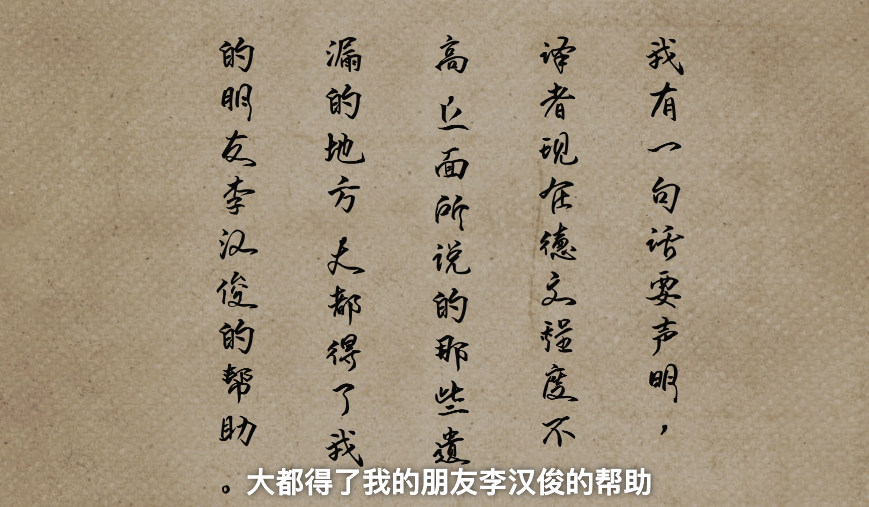 我有一句话要声明，
译者现在德文程度不
高上面所说的那些遗
漏的地方大都得了我
的朋友李汉俊的帮助
。大都得了我的朋友李汉俊的帮助